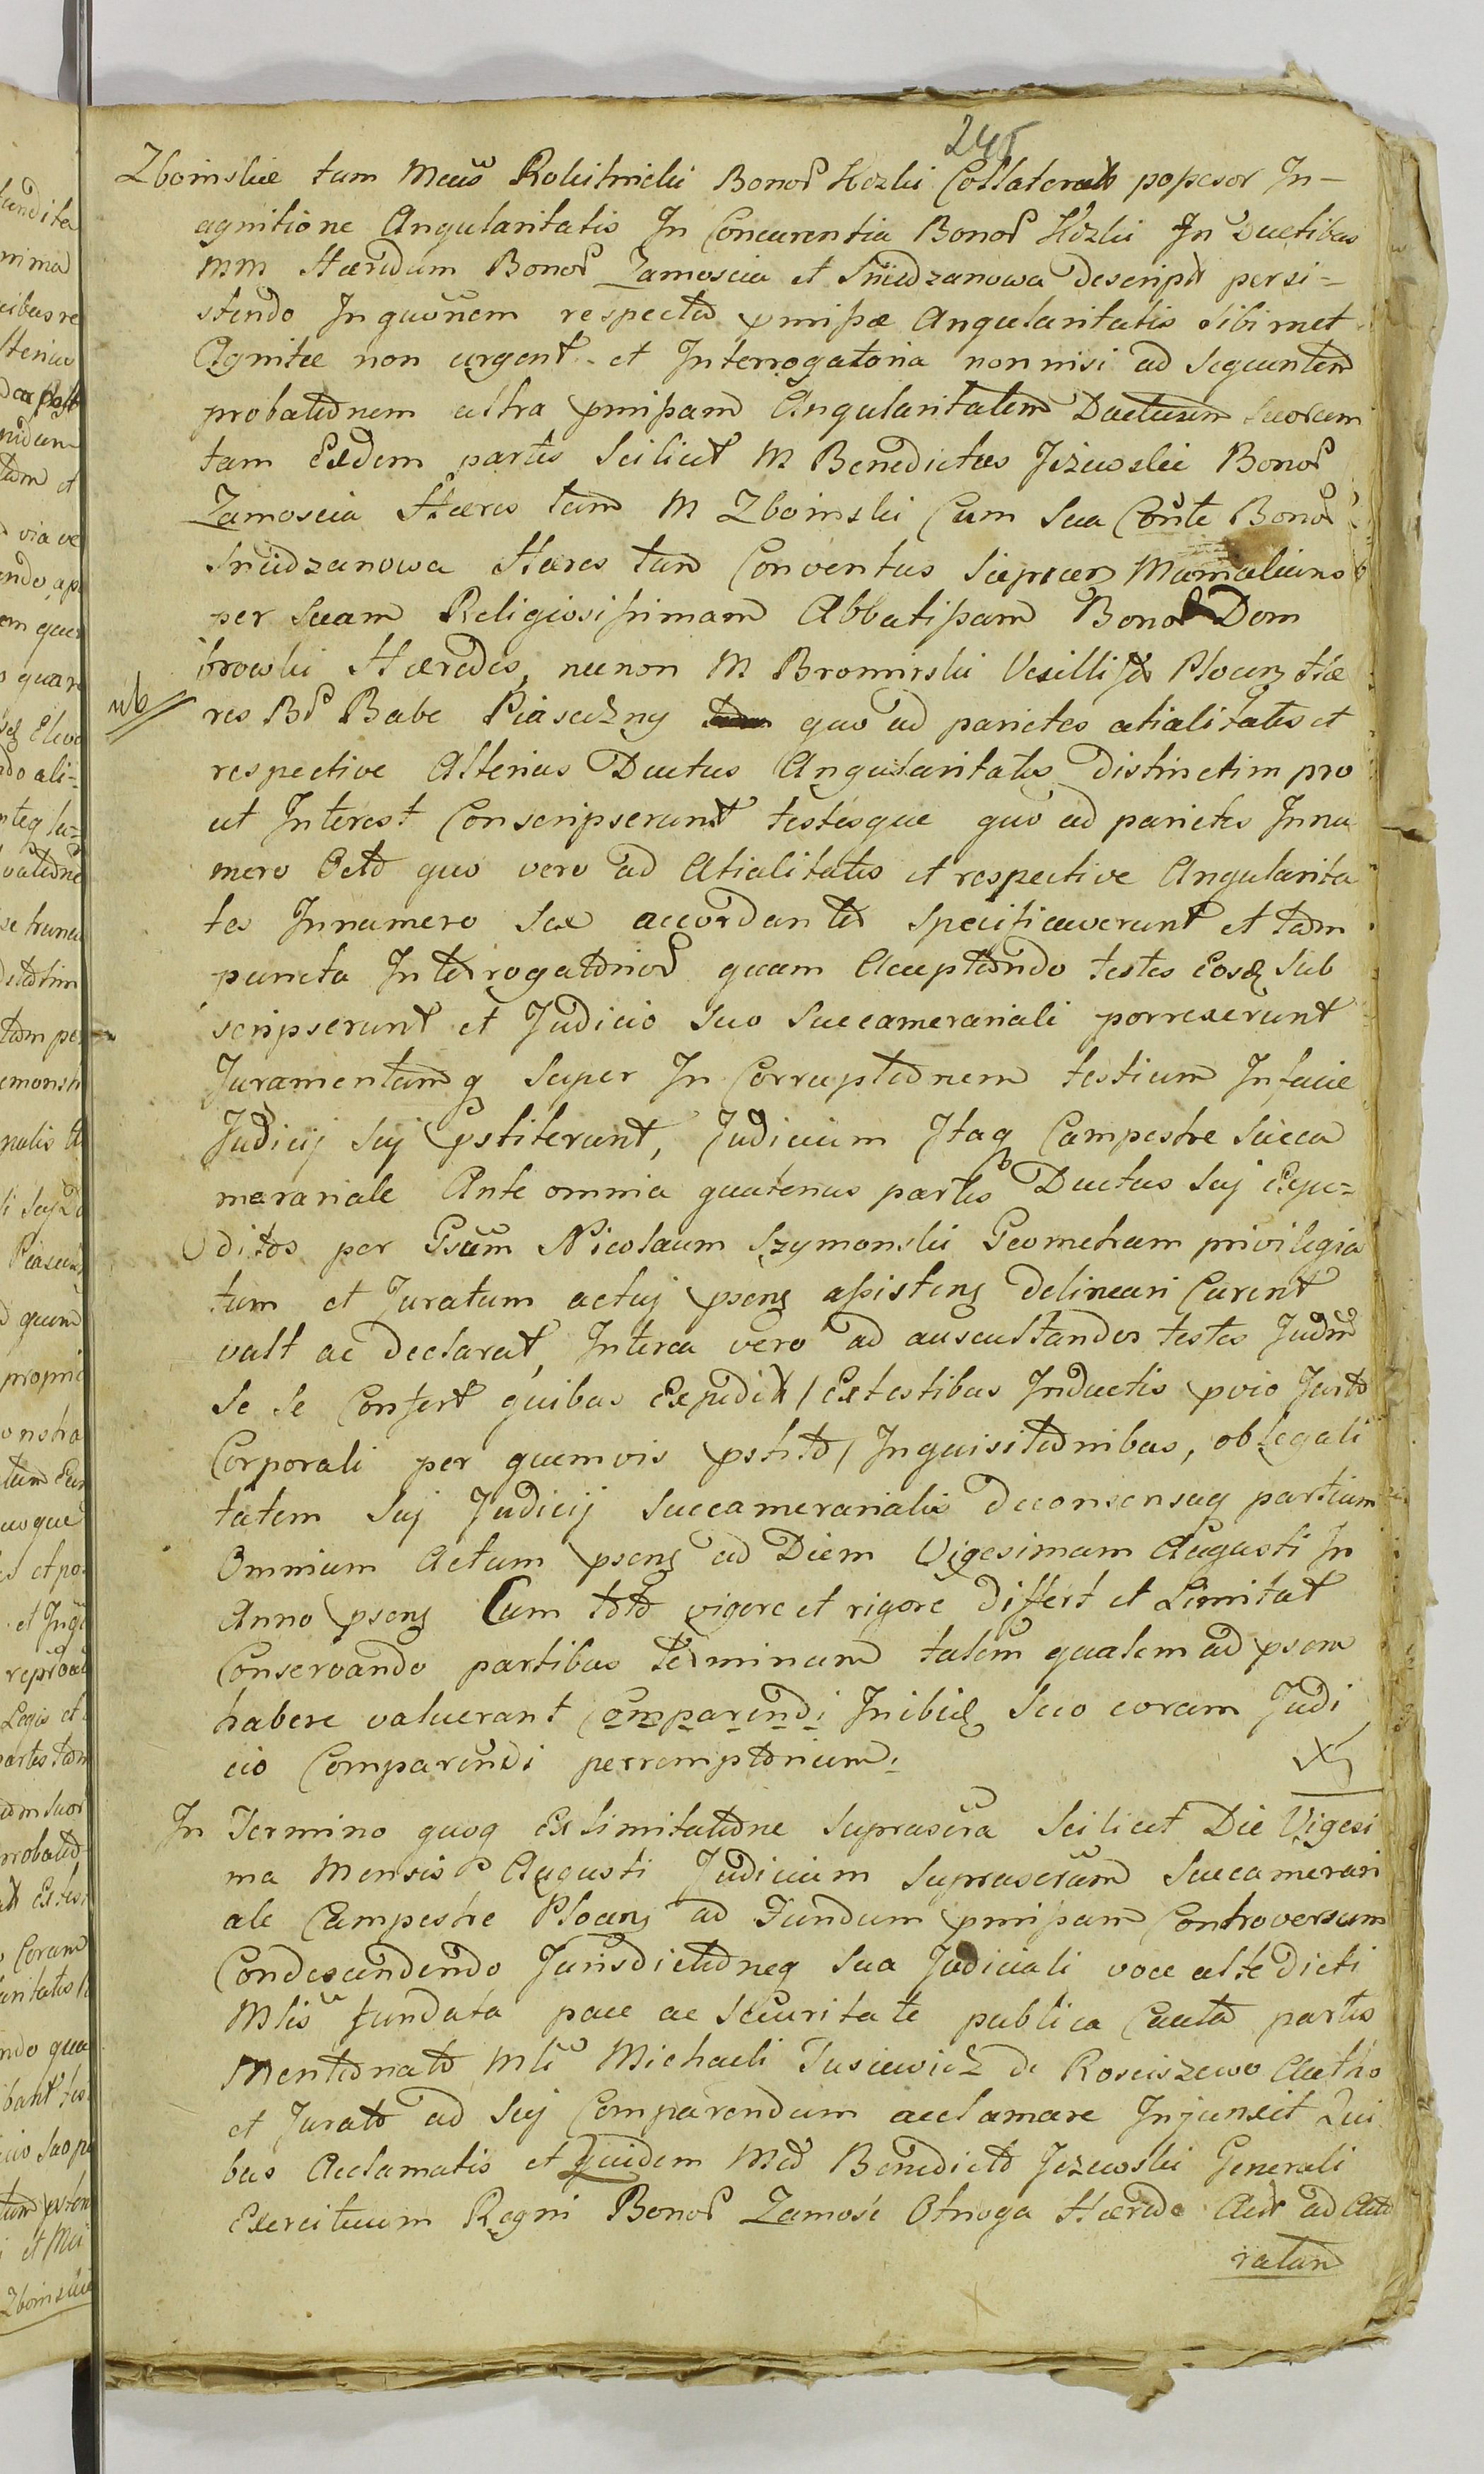 245
Zboinskie tum Mcus Rokitnicki Bonor Kozki Collateralis possesor In-
agnitione Angularitatis In Concurentia Bonor Kozki In Ductibus
MM Hæredum Bonor Zamoscia et Sniedzanowa Descriptis persi=
stendo In quonem respectu pmissæ Angularitatis sibi met
Agnitæ non urgent et Interrogatoria non nisi ad sequentem
probationem ultra pmissam Angularitatem Ductuum suorum
tam Eædem partes scilicet M Benedictus Jezewski Bonor
Zamoscia Hæres tam M Zboinski Cum sua Conte Bonor
Sniedzanowa Hæres tam Conventus Sieprcen
per suam Religiosissimam Abbatissam Bonor Dom
browki Hæredes, necnon M Bromirski Vexillifer Plocen Hæ
nb res Br Babe Piaseczny quo ad parietes atialitates et
respective Alterius Ductus Angularitates distinctim pro
ut Interest Conscripserunt testesque quo ad parietes Innu
mero Octo quo vero ad Atialitates et respective Angularita
tes Innumero sex accordantes specificaverunt et tam
puncta Interrogatorior quam Acceptando testes Eosq sub
scripserunt et Judicio suo succamerariali porrexerunt
Juramentumq super In Corruptionem testium In facie
Judicij suj pstiterunt, Judicium Itaq Campestre succa
merariale Ante omnia quatenus partes Ductus suj Expe=
ditos per Gsum Nicolaum Szymonski Geometram privilegia
tum et Juratum actuj psens assistens delineari Curent
vult ac declarat, Interea vero ad auscultandos testes Judm
se se Confert quibus Expeditis / Ex testibus Inductis pvio Jurto
Corporali per quemvis pstito / Inquisitionibus, ob legali
tatem suj Judicij succamerarialis deconsensuq partium
Omnium Actum psens ad Diem Vigesimam Augusti In
Anno psens Cum toto vigore et rigore differt et Limitat
Conservando partibus terminum talem qualem ad psem
habere valuerant Comparendi Inibiq suo coram Judi
cio Comparendi perremptorium.
In Termino quoq Ex limitatione suprascra scilicet Die Vigesi
ma Mensis Augusti Judicium suprascrum succamerari
ale Campestre Plocens ad Fundum pmissam Controversum
Condescendendo Jurisdictioneq sua Judiciali voce alte dicti
Mlis fundata pace ac securitate publica Cauta partes
Mentionato Mli Michaeli Tusiewicz de Rosciszewo Autho
et Jurato ad suj Comparendum acclamare Injunxit Qui
bus Acclamatis et Quidem Mco Benedicto Jezewski Generali
Exercituum Regni Bonor Zamosc Otnoga Hærede ad
ratam